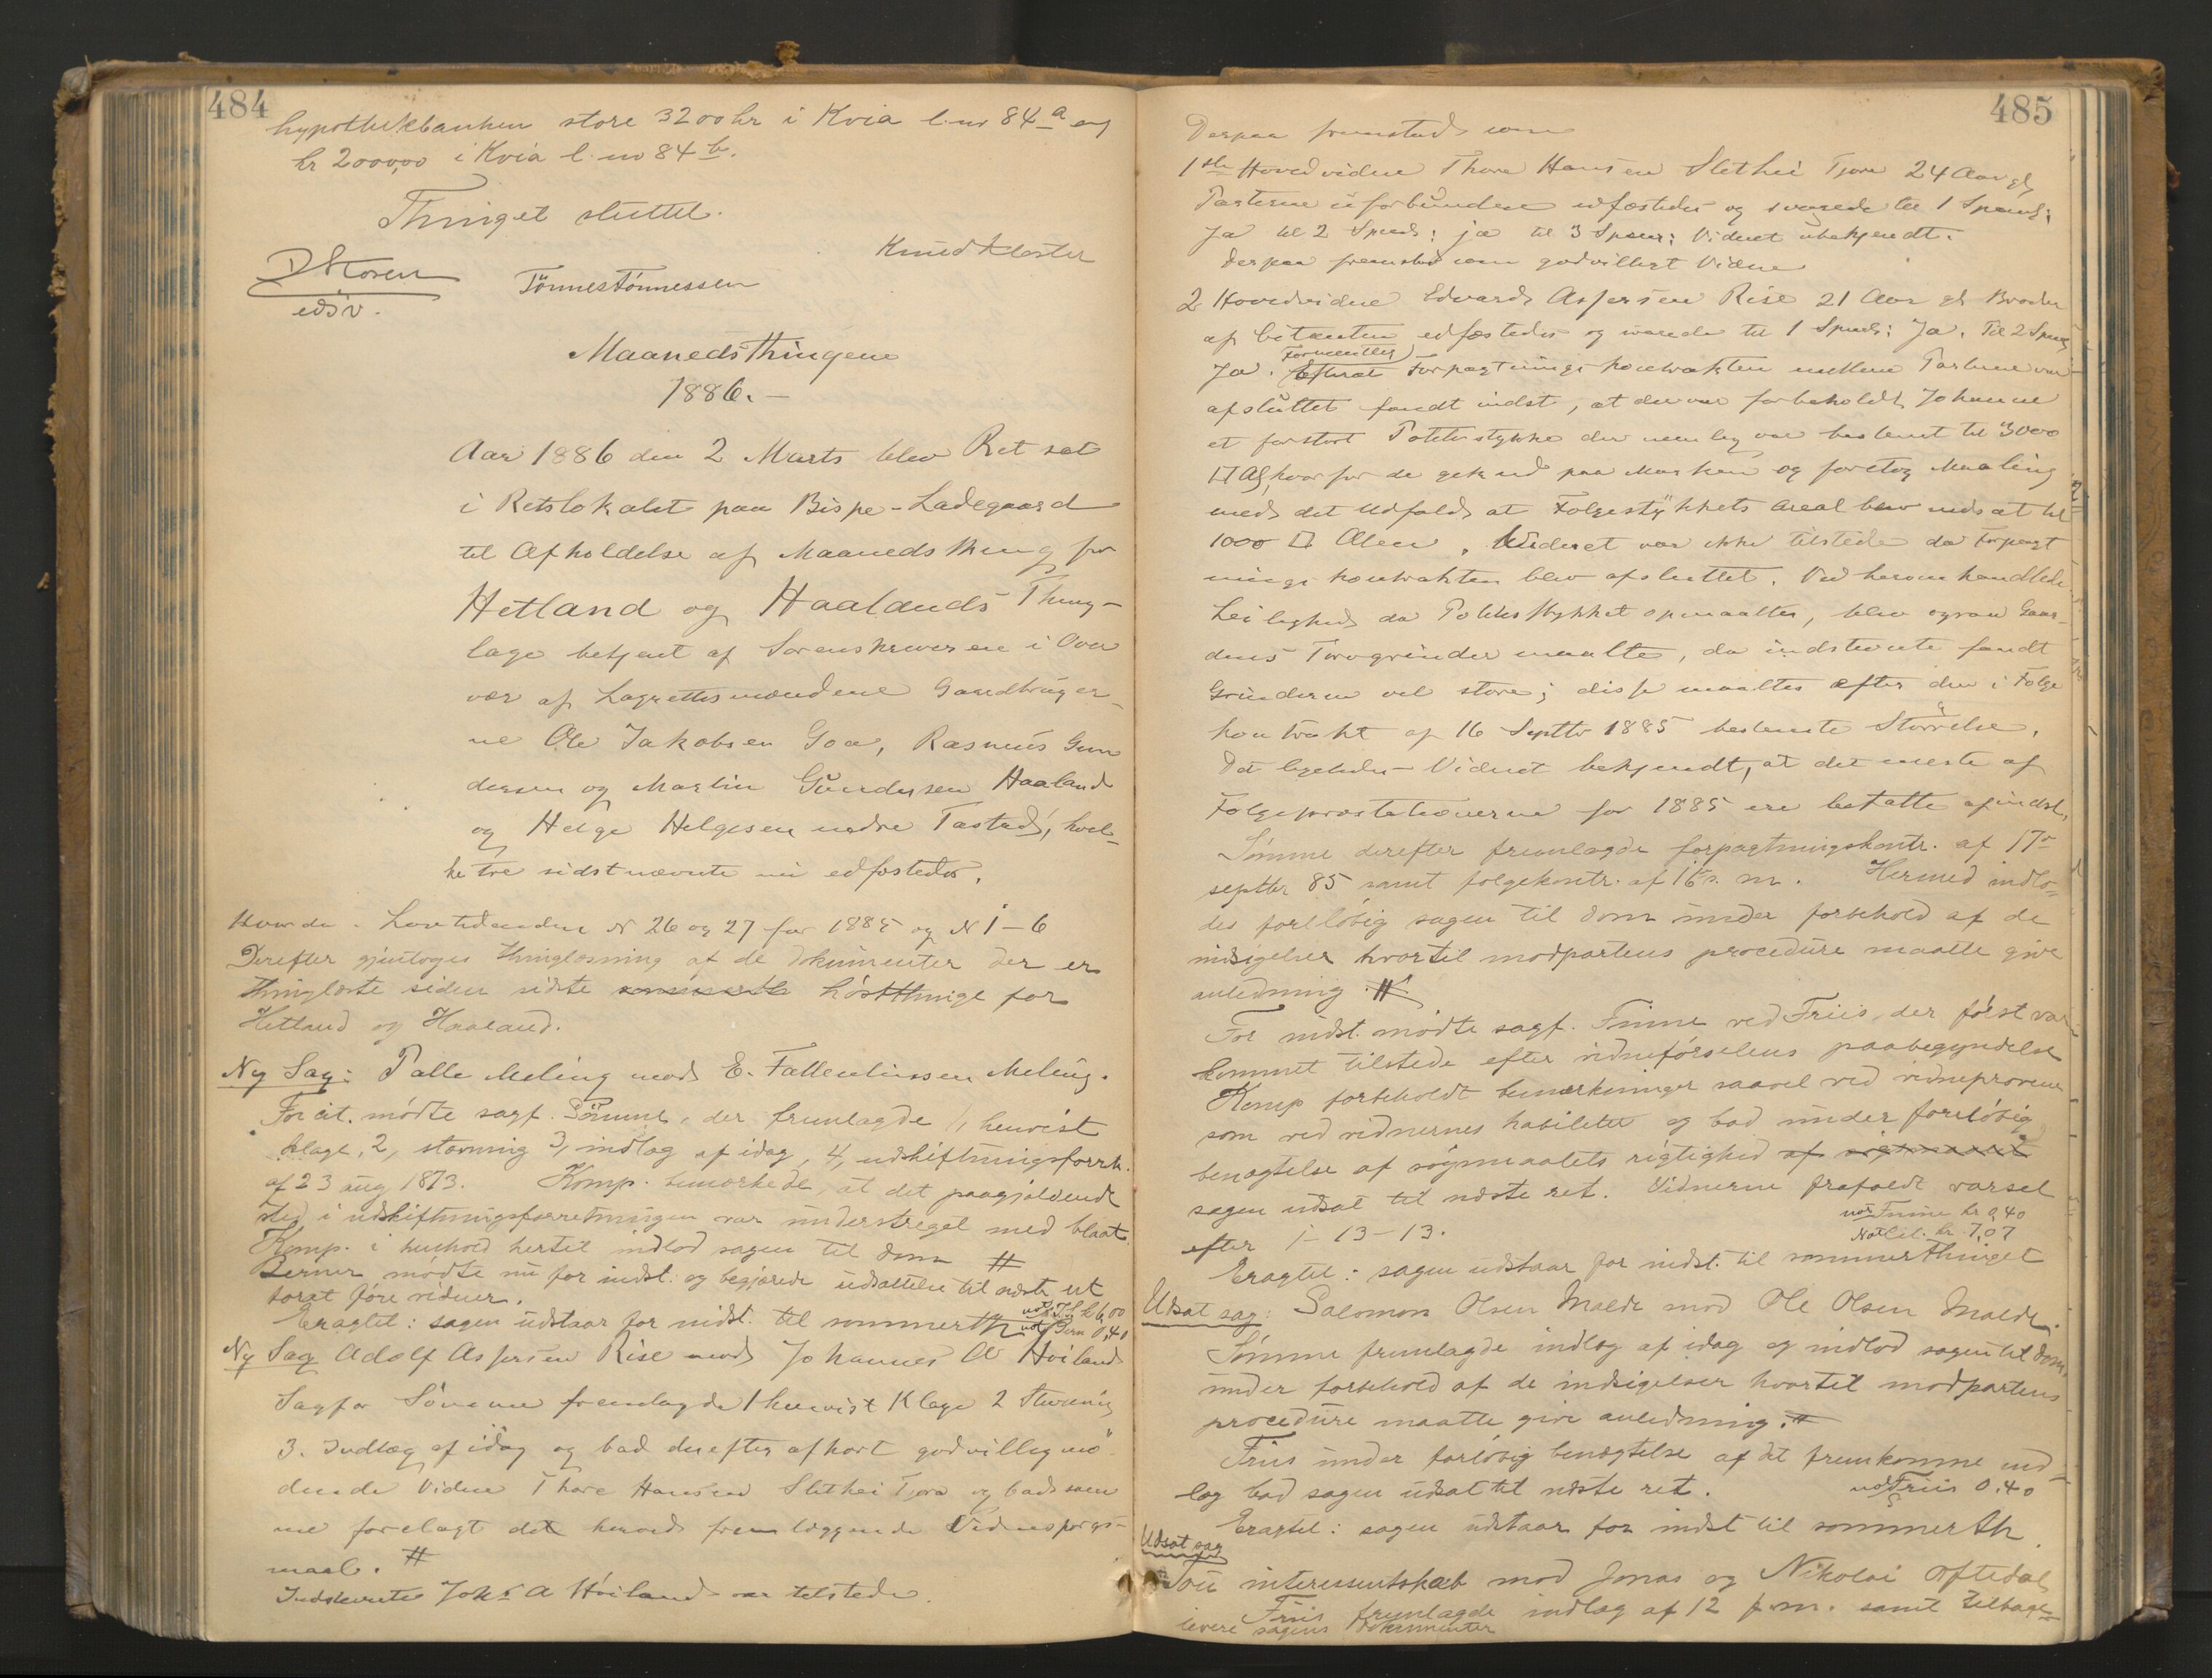 484
hypothekbanken store 3200 kr i Kvia l. nr 84 a og
kr 2000,00 i Kvia l. nr 84 b.
Thinget sluttet.
Knud Kloster
Tönnes Tönnessen
edsv.
Maanedsthingene
1886.
Aar 1886 den 2 Marts blev Ret sat
i Retslokalet paa Bispe-Ladegaard
til Afholdelse af Maanedsthing for
Hetland og Haalands Thing-
lage betjent af Sorenskriveren i Over
vær af Lagrettesmændene Gaardbruger
ne Ole Jakobsen Goa, Rasmus Gun
dersen og Martin Gundersen Haaland
og Helge Helgesen nedre Tastad, hvil-
ke tre sidstnævnte nu edfæstedes.
Hvorda. Lovtidenden N 26 og 27 for 1885 og N 1-6
Derefter gjentoges thinglæsning af de dokumenter der er
thinglæste siden sidste höstthinge for
Hetland og Haaland.
Ny Sag: Palle Meling mod E. Fallentinssen Meling.
For cit. mödte sagf. Sömme, der fremlagde 1, henvist
klage, 2, stevning 3, indlæg af idag, 4, udskiftningsforrh.
af 23 aug 1873. Komp. bemærkede, at det paagjældende
sted i udskiftningsforretningen var understreget med blaat.
Komp. i henhold hertil indlod sagen til dom #
Berner mödte nu for indst. og begjærede udsættelse til næste ret
foræt före vidner.
Eragtet: sagen udstaar for indst. til sommerth
Ny Sag Adolf Aspersen Rise mod Johannes A Höiland
Sagfør Sömme fremlagde 1 henvist Klage 2 Stevning
3. Indlæg af idag og bad derefter afhørt godvillig mö-
dende Vidne Thore Hansen Slethei Tjora og bad sam
me forelagt det herved fremlæggende Vidnespørgs-
maal. #
Indstevnte Johs A Höiland var tilstede.
485
Derpaa fremstod som
1ste Hovedvidne Thore Hansen Slethei Tjora 24 Aar gl
Parterne uforbunden edfæstedes og svarede til 1 Spmls:
Ja til 2 Spmls: ja til 3 Spmr: Vidnet ubekjendt.
Derpaa fremstod som godvilligt Vidne
2 Hovedvidne Edvard Aspersen Rise 21 Aar gl Broder
af Citanten edfæstedes og svarede til 1 Spmls: Ja. Til 2 Spmls
Ja. Efterat Forpagtningskontrakten mellem Parterne var
afsluttet fandt indst, at der var forbeholdt Johanne
et for stort Potetesstykke der nemlig var bestemt til 3000
□ Al, hvorfor de gik ud paa Marken og foretog Maaling
med det Udfald at Folgestykkets Areal blev nedsat til
1000 □ Alen. Vidnet var ikke tilstede da Forpagt
ningskontrakten blev afsluttet. Ved herom handlede
Leilighed da Potetsstykket opmaaltes, blev ogsaa Gaar-
dens Torvgrinder maalte, da indstevnte fandt
Grinderne vel store; disse maaltes efter den i Folge
kontrakt af 16 Septbr 1885 bestemte Størrelse.
Det ligeledes Vidnet bekjendt, at det meste af
Folgepræstationerne for 1885 ere betalte af indst.
Sömme derefter fremlagde forpagtningskontr. af 17
septbr 85 samt folgekontr. af 16 s. m. Hermed indlo-
des foreløbig sagen til dom under forbehold af de
indsigelser hvortil modpartens procedure maatte give
anledning. #
For indst. mödte sagf. Finne ved Friis, der først var
kommet tilstede efter vidneførselens paabegyndelse
Komp forbeholdt bemærkninger saavel ved vidneprovene
som ved vidnernes habilitet og bad under foreløbig
benægtelse af søgsmaalets rigtighed
sagen udsat til næste ret. Vidnerne frafaldt varsel
efter 1-13-13.
not Finne kr 0,40
Not Cit. kr. 7,07
Eragtet: sagen udstaar for indst. til sommerthinget
Udsat sag: Salomon Olsen Malde mod Ole Olsen Malde.
Sömme fremlagde indlæg af idag og indlod sagen til dom,
under forbehold af de indsigelser hvortil modpartens
procedure maatte give anledning. #
Friis under forløbig benægtelse af det fremkomne ind-
læg bad sagen udsat til næste ret.
not Friis 0.40
Eragtet: sagen udstaar for indst til sommerth.
Udsat sag
Tou interessentskab mod Jonas og Nikolai Oftedal
Friis fremlagde indlæg af 12 f. m. samt tilbage-
levere sagens dokumenter